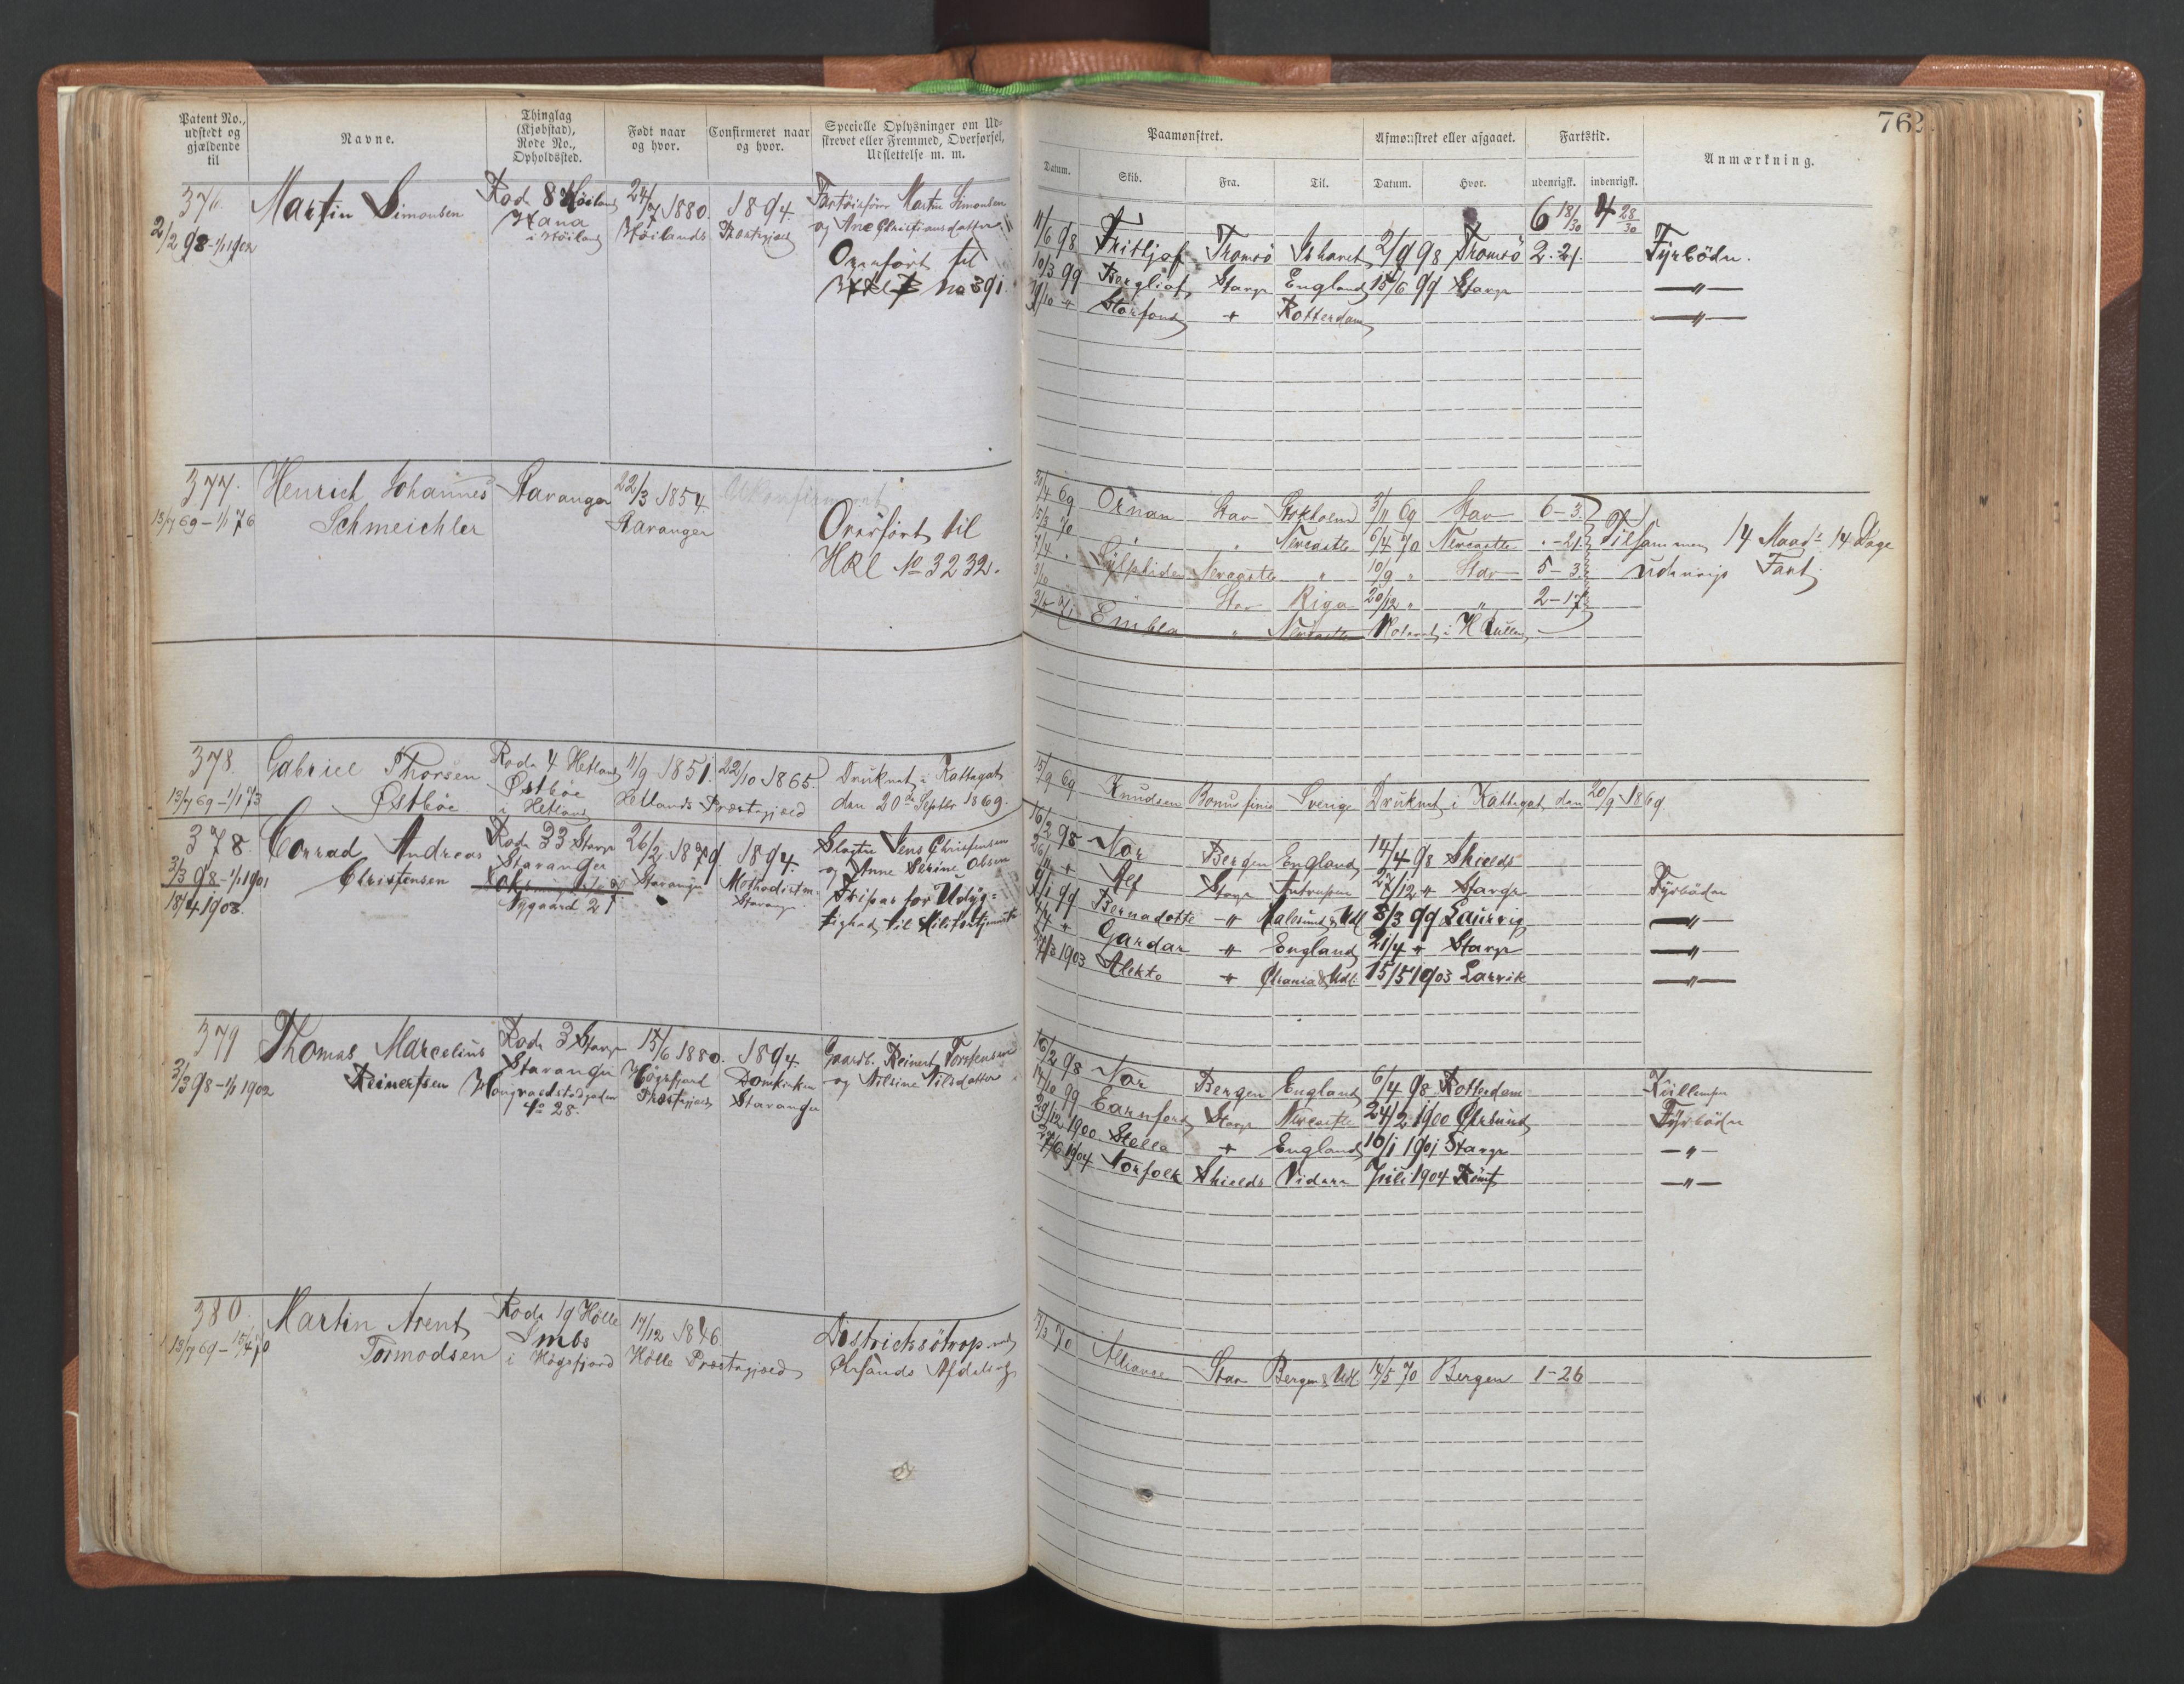 Patent No., udstedt og gjældende til
Navne.
Thinglag (Kjøbstad), Rode No., Opholdssted.
Født naar og hvor.
Confirmeret naar og hvor.
Specielle Oplysninger om Udskrevet eller Fremmed, Overførsel, Udslettelse m. m.
376.
2/2 98 - 1/1 1902
Martin Simonsen
Rode 8 Høiland
Hana
i Høiland
24/7 1880.
Høilands
1894.
Præstegjæld
Fartøifører Martin Simonsen
og Ane Christiansdatter
Overført til
no 391.
377.
13/7 69 - 1/1 76
Henrich Johannes
Schmeichler
Stavanger
22/3 1854.
Stavanger
Ukonfirmeret
Overført til
HRl No 3232.
378.
13/7 69 - 1/1 73
Gabriel Thorsen
Østbøe
Rode 4 Hetland
Østbøe
i Hetland
11/9 1851.
22/10 1865.
Hetlands Præstegjæld
Druknet i Kattegat
den 20de Septbr 1869.
378.
3/3 98 - 1/1 1901
18/4 1908.
Conrad Andreas
Christensen
Rode 33 Stavgr
Stavanger
Nygaard 27
26/2 1879.
Stavanger
1894.
Methodistm.
Stavanger
Slagter Jens Christensen
og Anne Serine Olsen
Fripas for Udyg-
tighed til Militærtjeneste
379
3/3 98 - 1/1 1902
Thomas Marcelius
Reinertsen
Rode 3 Stavgr
Stavanger
No 28.
15/6 1880.
Høgsfjord
Præstegjæld
1894.
Domkirken
Stavanger
Gaardb. Reinert Torstensen
og Nilsine Nilsdatter
380.
13/7 69 - 15/4 70
Martin Arent
Tormodsen
Rode 19 Hølle
Imbs
i Høgsfjord
17/12 1846.
Hølle Præstegjæld
Districhsøtrop ved
Chrsands Afdeling
762.
Paamønstret.
Afmønstret eller afgaaet.
Fartstid.
Anmærkning.
Datum.
Skib.
Fra.
Til.
Datum.
Hvor.
udenrigsk.
indenrigsk.
6 18/30 4 28/30
11/6 98 Fritjof Tromsö Ishavet 2/9 98 Tromsö 2. 21. Fyrbøder.
10/3 99 Bergliot Stavgr England 15/6 99 Stavgr —〃—
19/10 〃 Storfond 〃 Rotterdam —〃—
30/4 69 Ornan Stav Stokholm 3/11 69 Stav 6 - 3.
15/3 70 〃 〃 Newcastle 6/4 70 Newcastle 〃 - 21. Tilsammen 14 Maadr 14 Dage
7/4 〃 Sylphiden Newcastle 〃 10/9 〃 Stav 5 - 3. udenrigs Fart
3/10 Stav Riga 20/12 〃 〃 2 - 17
Embla 〃 Newcastle Noteret i HRullen
15/9 69 Knudsen Bonus finis Sverige Druknet i Kattegat den 20/9 1869
16/2 98 Nor Bergen England 14/4 98 Shields
26/11 〃 Alf Stavgr Antwerpen 27/12 〃 Stavgr Fyrbøder
9/1 99 Bernadotte —〃 Aalesund & Udl 8/3 99 Laurvig —〃—
4/4 〃 Gardar 〃 England 21/4 〃 Stavgr —〃—
1903 Alekto 〃 Chrania & Udl. 15/5 1903 Larvik —〃—
16/2 98 Nor Bergen England 6/4 98 Rotterdam Kullemper
14/10 99 Earnford Stavgr Newcastle 24/2 1900 Ørsund Fyrbøder
29/12 1900 Stella 〃 England 16/1 1901 Stavgr —〃—
27/6 1904 Norfolk Shields Vidare Juli 1904 Rømt —〃—
3/3 70 Alliance Stav Bergen & Udl. 14/5 70 Bergen 1 - 26